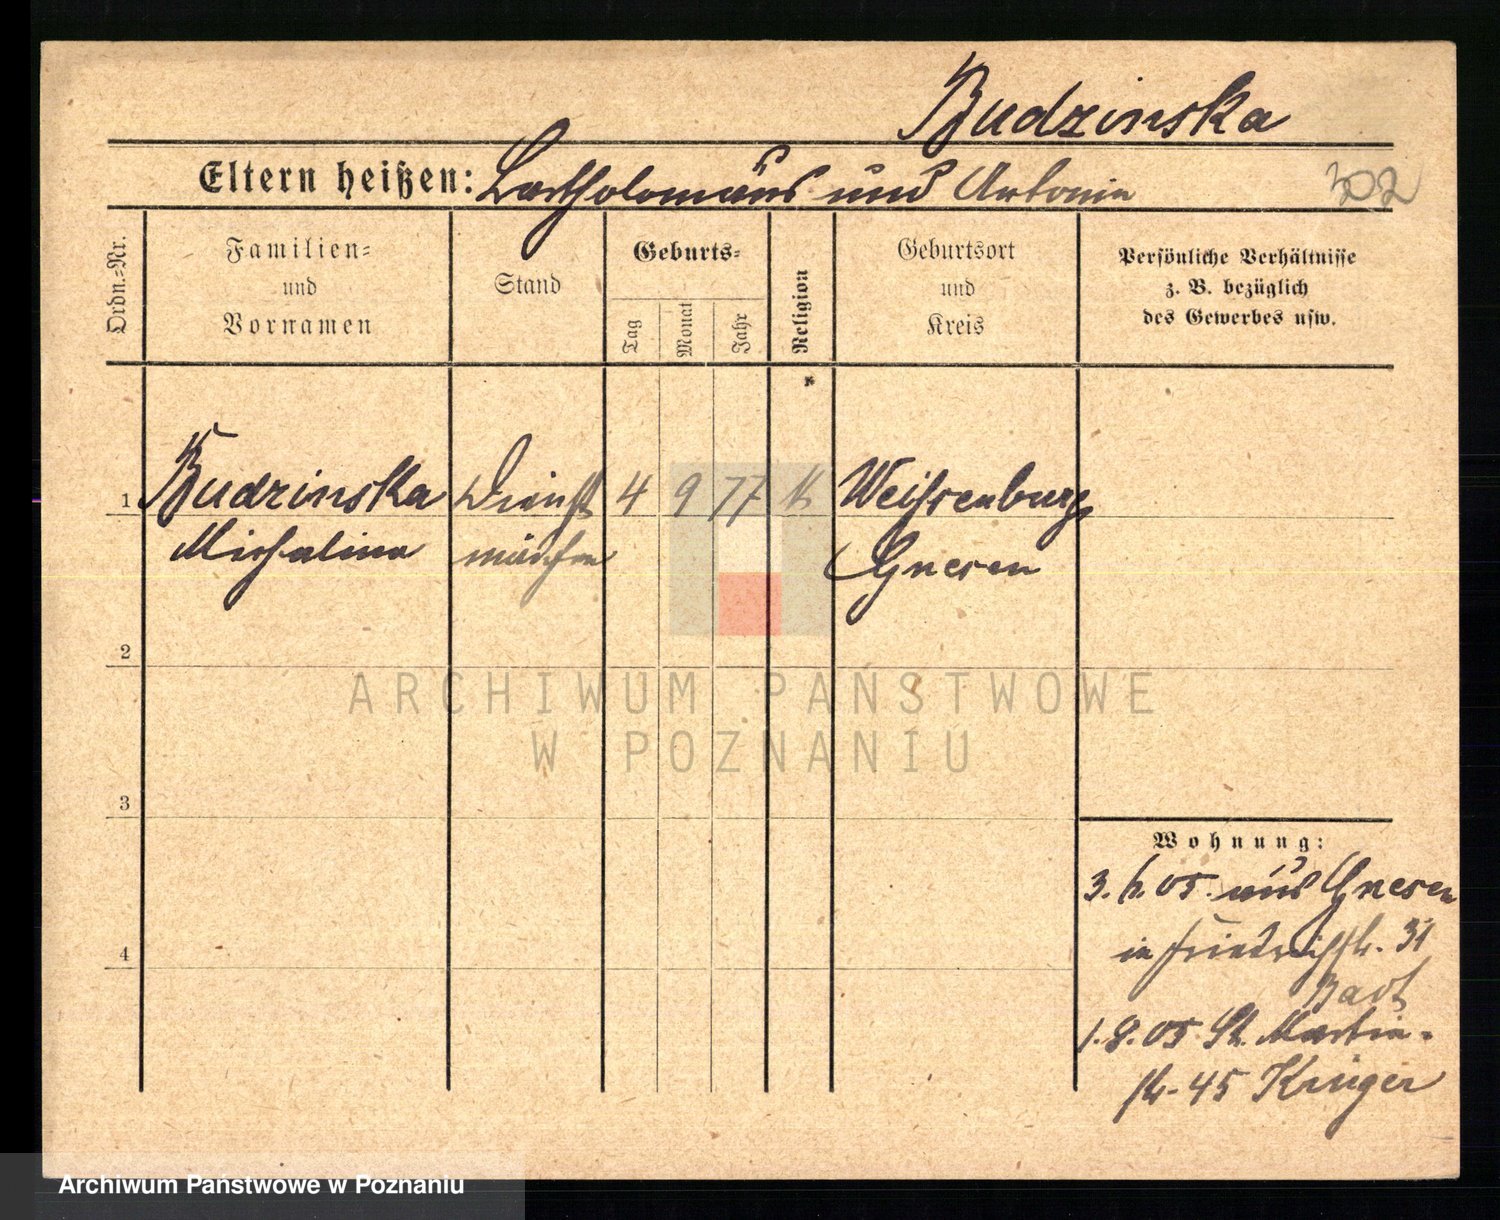 Budzinska
Eltern heißen: Bartholomäus und Antonie
302
Ordn.=Nr.
Familien=
und
Vornamen
Stand
Geburts=
Tag
Monat
Jahr
Religion
Geburtsort
und
Kreis
Persönliche Verhältnisse
z. B. bezüglich
des Gewerbes usw.
1 Budzinska Dienst 4 9 77 k Weissenburg
Michalina mädchen Gnesen
2
3
4
Wohnung:
3. 6. 05. aus Gnesen
in Friedrichstr. 31
1. 8. 05 St. Martin=
str. 45 Krüger
ARCHIWUM PAŃSTWOWE
W POZNANIU
Archiwum Państwowe w Poznaniu